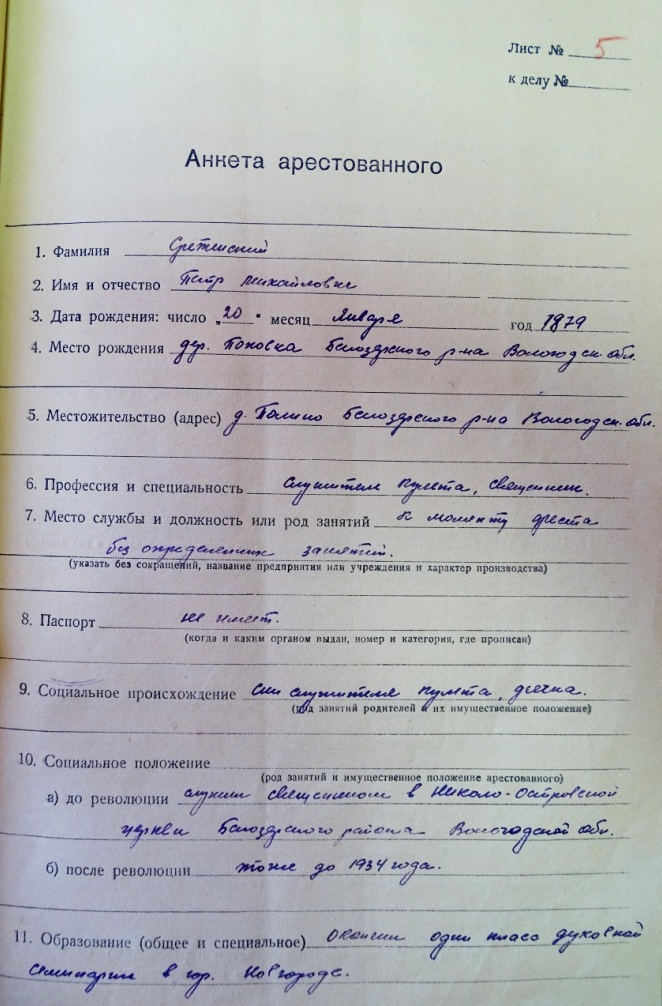 Лист № 5
к делу №
Анкета арестованного
1. Фамилия Сретенский
2. Имя и отчество Петр Михайлович
3. Дата рождения: число „20“ месяц Января год 1879
4. Место рождения дер. Поповка Белозерского р-на Вологодск. обл.
5. Местожительство (адрес) д. Палино Белозерского р-на Вологодск. обл.
6. Профессия и специальность служитель культа, священник.
7. Место службы и должность или род занятий к моменту ареста
без определенных занятий.
(указать без сокращений, название предприятия или учреждения и характер производства)
8. Паспорт не имеет.
(когда и каким органом выдан, номер и категория, где прописан)
9. Социальное происхождение сын служителя культа, дьячка.
(род занятий родителей и их имущественное положение)
10. Социальное положение
(род занятий и имущественное положение арестованного)
а) до революции служил священником в Николо-Островской
церкви Белозерского района Вологодской обл.
б) после революции тоже до 1934 года.
11. Образование (общее и специальное) Окончил один класс духовной
семинарии в гор. Новгороде.